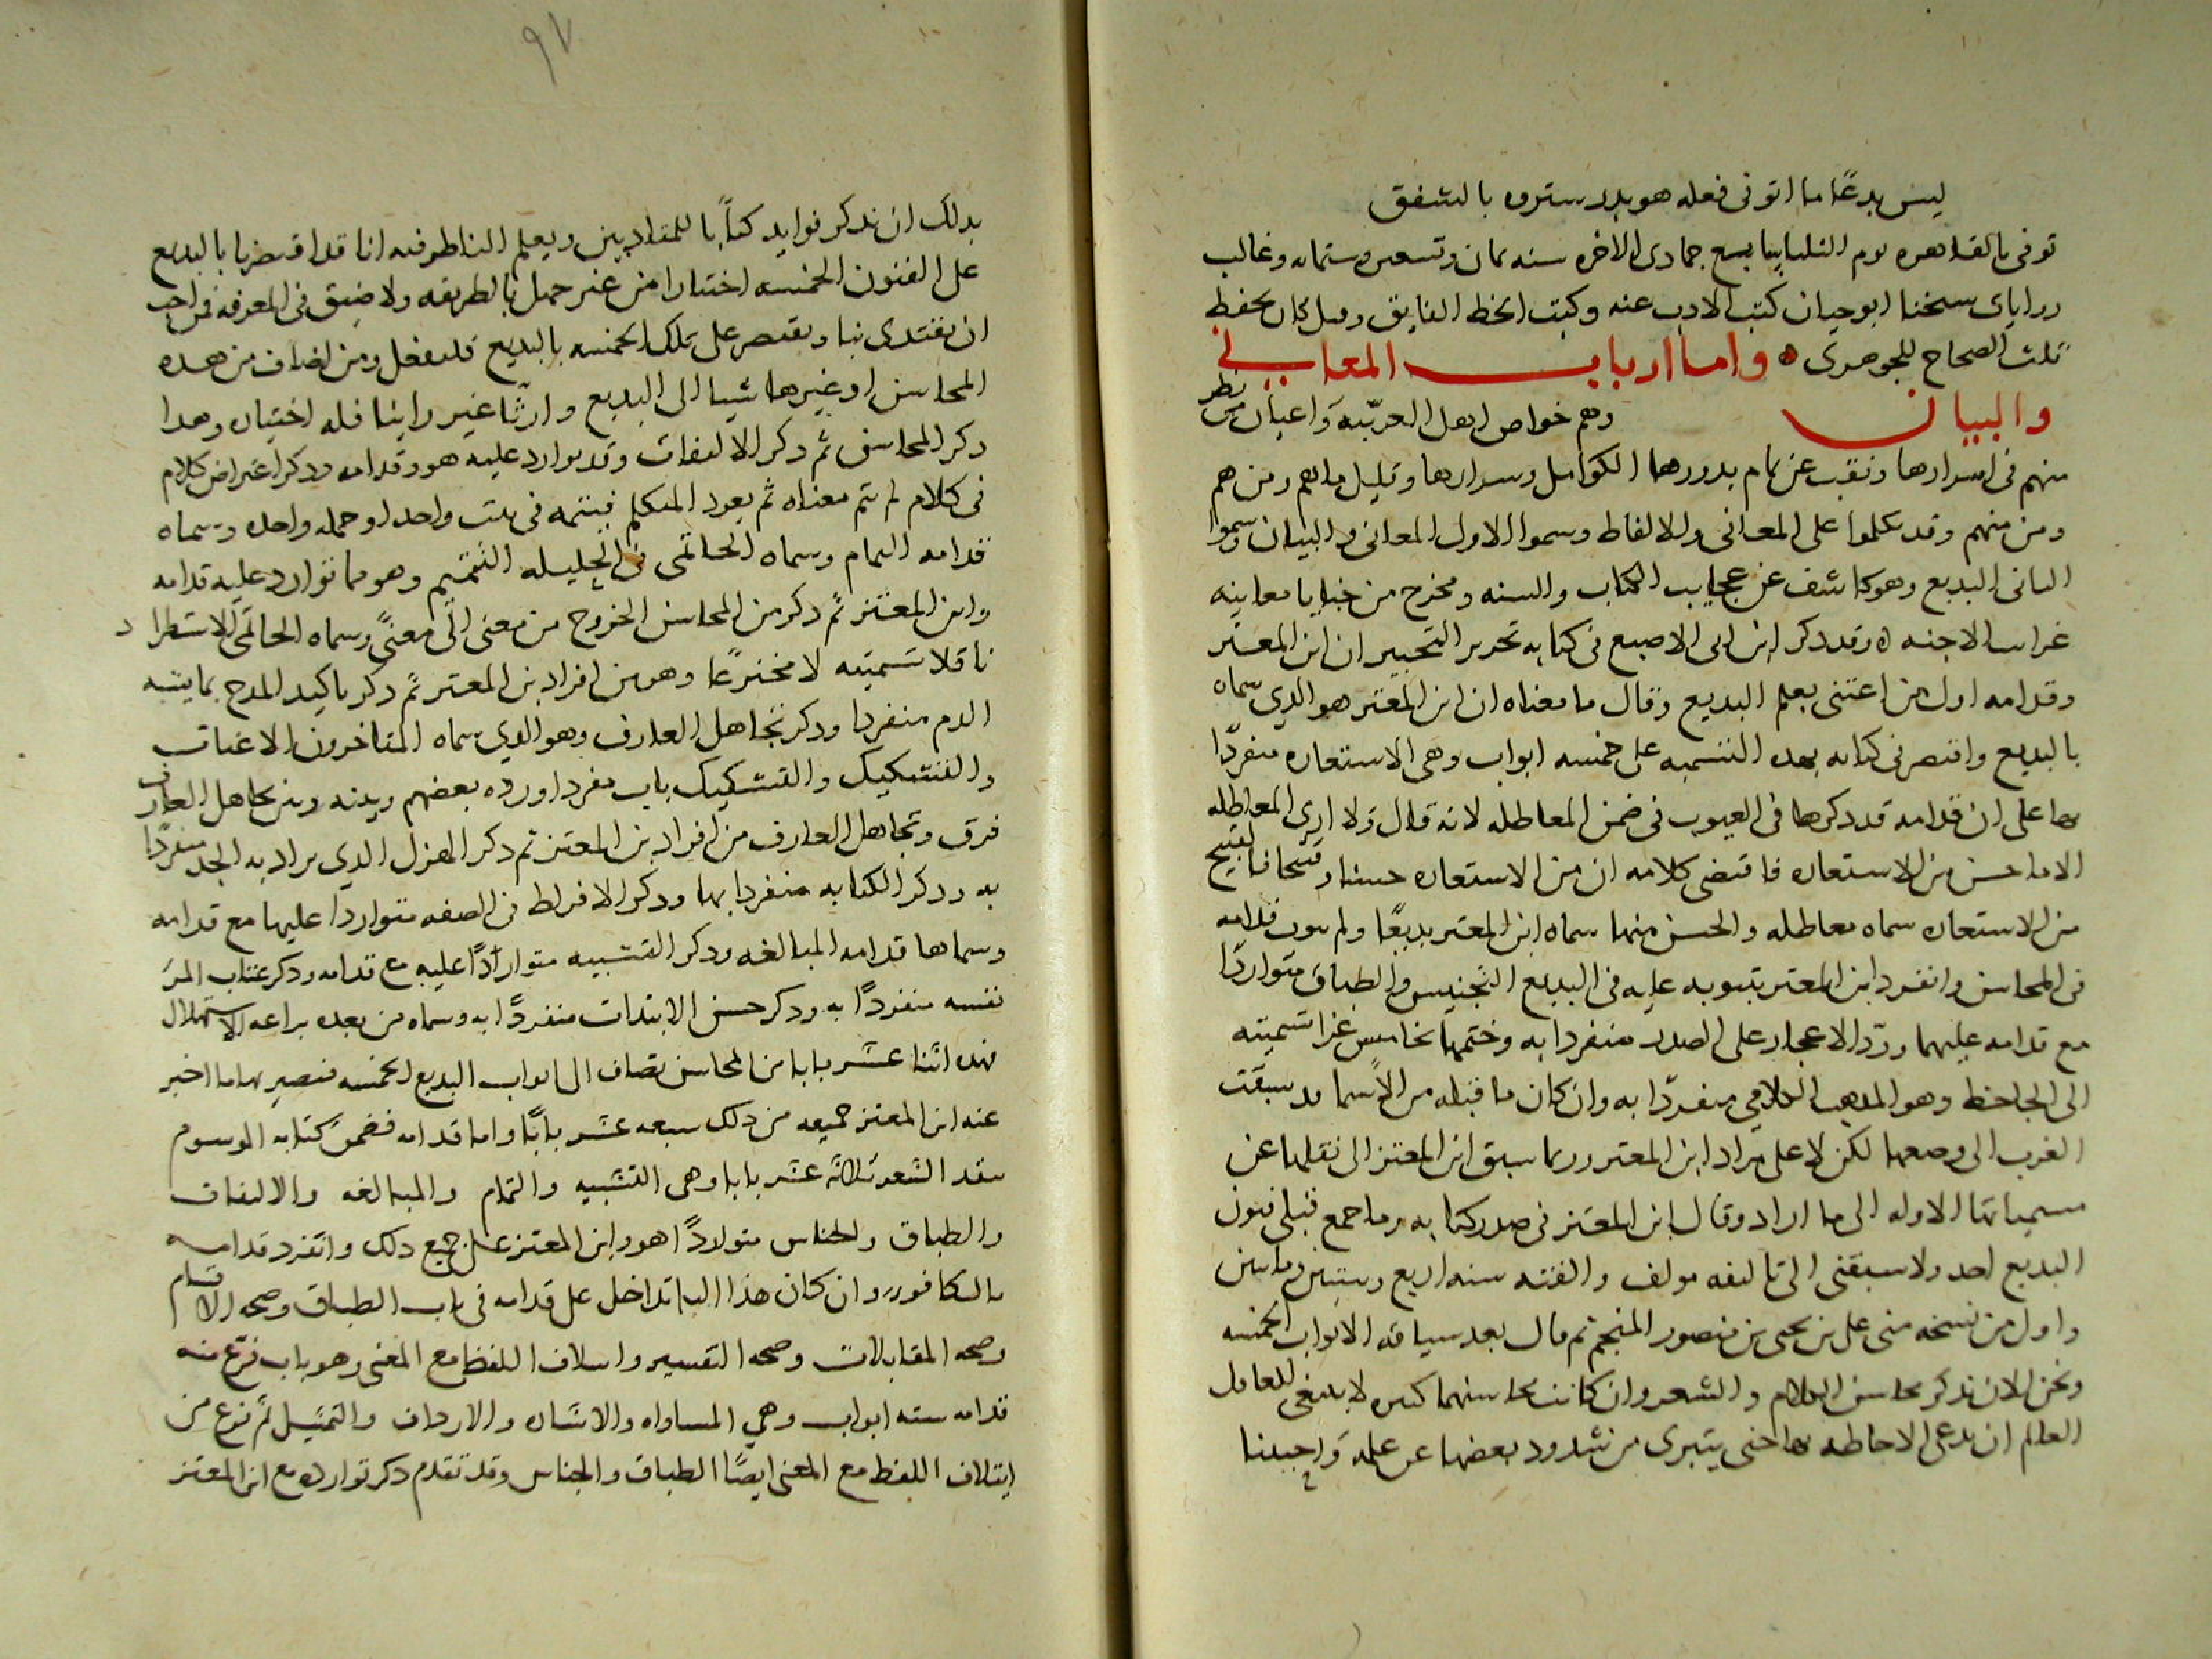 ليس بدعًا ما اتو فى فعله هو بدر ستروه بالشفق
توفى بالقاهره يوم الثلثا سابع جمادى الاخره سنه ثمان وتسعين وستمايه وغالب
روايات شيخنا ابو حيان كتب الادب عنه وكتب الخط الفايق وقيل كان يحفظ
ثلث الصحاح للجوهرى ه واما ارباب المعانى
والبيان وهم خواص اهل العربيّه واعيان من نظر
منهم فى اسرارها ونقب عن تمام بدورها الكوامل وسرارها وقليل ما هم ومن هم
ومن منهم وقد تكلموا على المعانى والالفاظ وسموا الاول المعانى والبيان وسموا
الثانى البديع وهو كاشف عن عجايب الكتاب والسنه ومخرج من خبايا معانيه
غرايب الاجنه ه وقد ذكر ابن ابى الاصبع فى كتابه تحرير التحبير ان ابن المعتز
وقدامه اول من اعتنى بعلم البديع وقال ما معناه ان ابن المعتز هو الدي سماه
بالبديع واقتصر فى كتابه بهده التسميه على خمسه ابواب وهى الاستعاره منفردًا
بها على ان قدامه قد دكرها فى العيوب فى ضمن المعاظله لانه قال ولا ارى المعاظله
الا ما حسن من الاستعاره فاقتضى كلامه ان من الاستعاره حسنا وقبيحا فالقبيح
من الاستعاره سماه معاظله والحسن منها سماه ابن المعتز بديعًا ولم يبوب قدامه
فى المحاسن وانفرد ابن المعتز بتبويبه عليه فى البديع التجنيس والطباق متواردًا
مع قدامه عليهما وردّ الاعجاز على الصدور منفردا به وختمها بخامس عزا تسميته
الى الجاحظ وهو المدهب الكلامي منفردًا به وان كان ما قبله من الاسما قد سبقت
العرب الى وضعها لكن لا على مراد ابن المعتز وربما سبق ابن المعتز الى نقلها عن
مسمياتها الاوله الى ما اراد وقال ابن المعتز فى صدر كتابه وما جمع قبلى فنون
البديع احد ولا سبقنى الى تاليفه مولف والفته سنه اربع وسبعين وماتين
واول من نسخه منى على بن يحيى بن منصور المنجم ثم قال بعد سياقه الابواب الخمسه
ونحن الان ندكر محاسن الكلام والشعر وان كانت محاسنهما كثيره لا ينبغى للعاقل
العالم ان يدعى الاحاطه بها حتى يتبرى من شدود بعضها عن علمه واحببنا
٩٧
بدلك ان ندكر فوايد كتابنا للمتادبين ويعلم الناظر فيه انا قد اقتصرنا بالبديع
على الفنون الخمسه اختيارا من غير جهل بالطريقه ولا ضيق فى المعرفه فمن احب
ان يقتدى بنا ويقتصر على تلك الخمسه بالبديع فليفعل ومن اضاف من هده
المحاسن او غيرها شيا الى البديع وارتًا غير راينا فله اختياره وهدا
دكر المحاسن ثم دكر الالتفات وقد توارد عليه هو وقدامه ودكر اعتراض كلام
فى كلام لم يتم معناه ثم يعود المتكلم فيتتمه فى بيت واحد او جمله واحده وسماه
قدامه التمام وسماه الحاتمى فى الجليله التتميم وهو مما توارد عليه قدامه
وابن المعتز ثم دكر من المحاسن الخروج من معنى الى معنًى وسماه الحاتمى الاستطراد
ناقلا تسميته لا مخترعًا وهو من افراد بن المعتز ثم دكر تاكيد المدح بما يشبه
الدم منفردا ودكر تجاهل العارف وهو الدي سماه المتاخرون الاعنات
والتشكيك والتشكيك باب مفرد اورده بعضهم وبينه وبين تجاهل العارف
فرق وتجاهل العارف من افراد بن المعتز ثم دكر الهزل الدي يراد به الجد منفردًا
به ودكر الكنايه منفردا بها ودكر الافراط فى الصفه متواردا عليها مع قدامه
وسماها قدامه المبالغه ودكر التشبيه متواردًا عليه مع قدامه ودكر عتاب المر
نفسه منفردًا به ودكر حسن الابتدات منفردًا به وسماه من بعده براعه الاستهلال
فهده اثنا عشر بابا من المحاسن تضاف الى ابواب البديع الخمسه فتصير بها ما اخبر
عنه ابن المعتز جميعه من دلك سبعه عشر بابًا واما قدامه فضمن كتابه الموسوم
بنقد الشعر ثلاثه عشر بابا وهى التشبيه والتمام والمبالغه والالتفات
والطباق والجناس متواردًا هو وابن المعتز على جميع دلك وانفرد قدامه
بالتكافو وان كان هذا الباب تداخل على قدامه فى باب الطباق وصحه الاقسام
وصحه المقابلات وصحه التفسير وايتلاف اللفظ مع المعنى وهو باب فرّع منه
قدامه سته ابواب وهي المساواه والاشاره والارداف والتمثيل ثم فرع من
ايتلاف اللفظ مع المعنى ايضًا الطباق والجناس وقد تقدم دكر توارده مع ابن المعتز